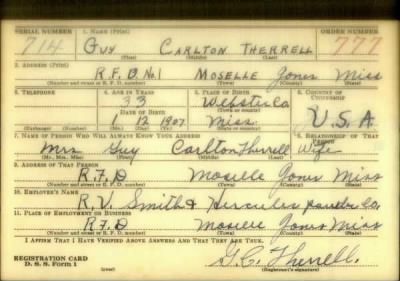 SERIAL NUMBER 1. NAME (Print) ORDER NUMBER
714 GUY CARLTON THERRELL 777
(First) (Middle) (Last)
2. ADDRESS (Print)
R.F.D. No.1 MOSELLE Jones Miss
(Number and street or R. F. D. number) (Town) (County) (State)
3. TELEPHONE 4. AGE IN YEARS 5. PLACE OF BIRTH 6. COUNTRY OF CITIZENSHIP
33 Webster Co
DATE OF BIRTH (Town or county)
12 1907 Miss. U.S.A
(Exchange) (Number) (Mo.) (Day) (Yr.) (State or country)
7. NAME OF PERSON WHO WILL ALWAYS KNOW YOUR ADDRESS 8. RELATIONSHIP OF THAT PERSON
Mrs Guy Carlton Therrell Wife
(Mr., Mrs., Miss) (First) (Middle) (Last)
9. ADDRESS OF THAT PERSON
R.F.D Moselle Jones Miss
(Number and street or R. F. D. number) (Town) (County) (State)
10. EMPLOYER'S NAME
R.V. Smith & Hercules powder Co.
11. PLACE OF EMPLOYMENT OR BUSINESS
R.F.D Moselle Jones Miss
(Number and street or R. F. D. number) (Town) (County) (State)
I AFFIRM THAT I HAVE VERIFIED ABOVE ANSWERS AND THAT THEY ARE TRUE.
REGISTRATION CARD
D. S. S. Form 1 G.C. Therrell.
(over) (Registrant's signature)